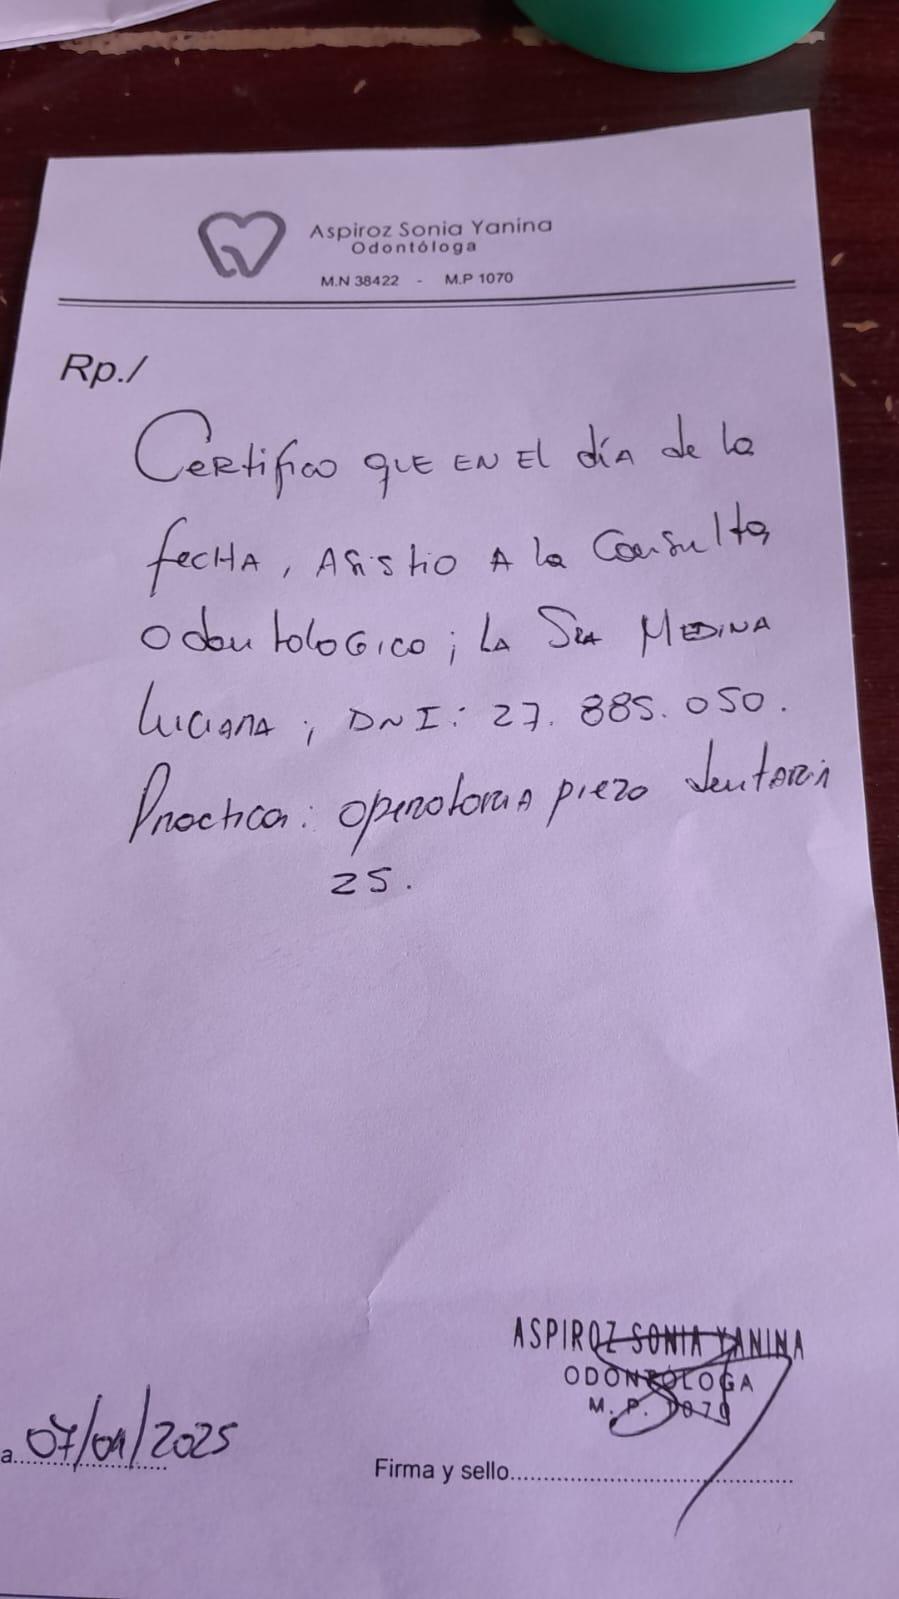 Aspiroz Sonia Yanina
Odontóloga
M.N 38422 - M.P 1070
Rp./
Certifico que en el día de la
fecha, Asistio A la Consulta
odontologico; la Sra Medina
Luciana; DNI: 27.885.050.
Practica: operatoria pieza dentaria
25.
ASPIROZ SONIA YANINA
ODONTÓLOGA
M. P. 1070
a......07/01/2025
Firma y sello..........................................